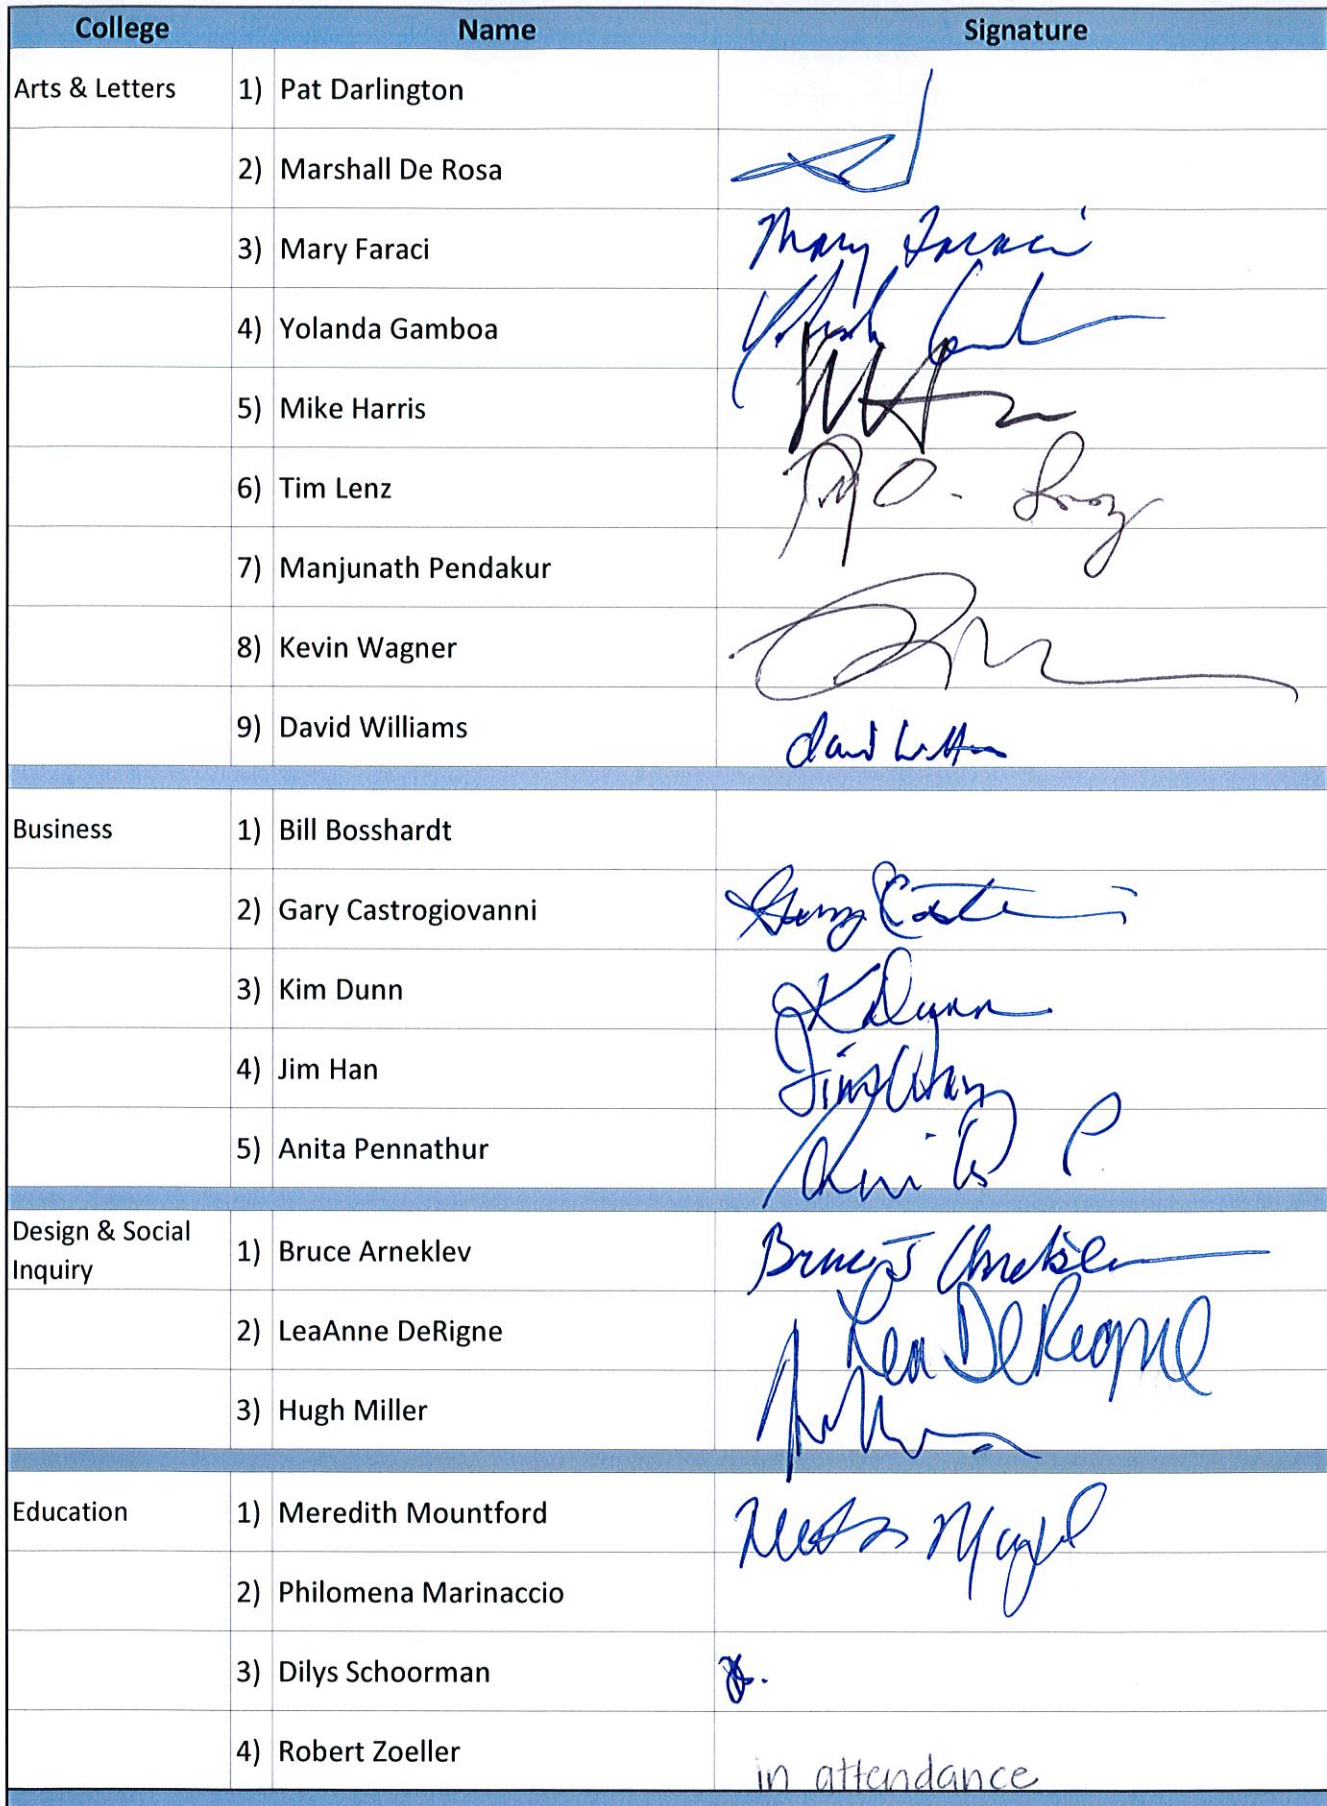 College Name Signature
Arts & Letters 1) Pat Darlington
2) Marshall De Rosa
3) Mary Faraci Mary Faraci
4) Yolanda Gamboa
5) Mike Harris
6) Tim Lenz
7) Manjunath Pendakur
8) Kevin Wagner
9) David Williams David
Business 1) Bill Bosshardt
2) Gary Castrogiovanni Gary
3) Kim Dunn KDunn
4) Jim Han
5) Anita Pennathur
Design & Social
Inquiry
1) Bruce Arneklev Bruce J
2) LeaAnne DeRigne Lea DeRigne
3) Hugh Miller
Education 1) Meredith Mountford
2) Philomena Marinaccio
3) Dilys Schoorman
4) Robert Zoeller in attendance